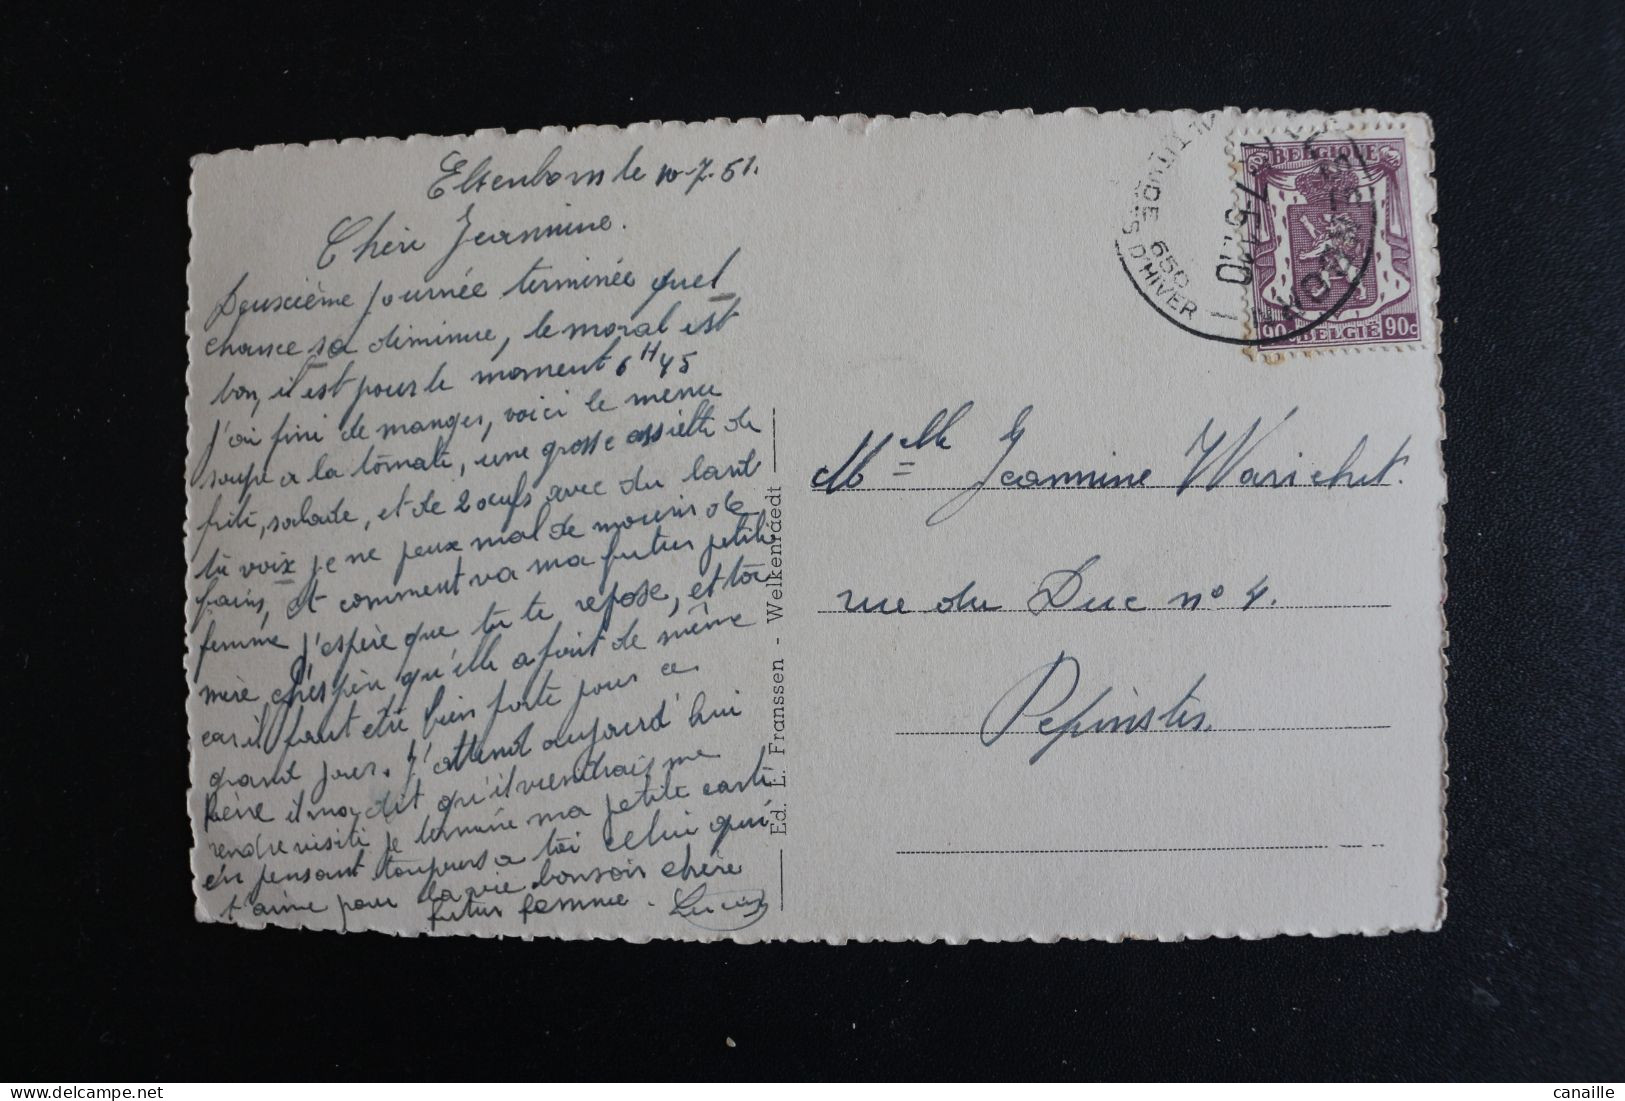 Elsenborn le 10-7-51.
Chère Jeannine.
Deuxcième journée terminée quel
chance sa diminue, le moral est
bon, il est pour le moment 6H45
j'ai fini de manger, voici le menu
soupe a la tomate, une grosse assiette de
frite, salade, et de 2 oeufs avec du lard
tu voix je ne peux mal de mourir de
faim, et comment va ma futur petite
femme j'espère que tu te repose, et toi
mère qu'elle a fait de même
car il faut etre bien forte pour ce
grand jour. J'attend aujourd'hui
il m'a dit qu'il viendrais me
rendre visite je termine ma petite carte
en pensant toujours a toi celui qui
t'aime pour la vie bonsoir chère
futur femme.
Ed. L. Franssen - Welkenraedt
ALTITUDE 650
D'HIVER
10-7-51
BELGIQUE
90c BELGIE 90c
Melle Jeannine Warichet.
rue du Duc n° 4.
Pepinster.
canaille